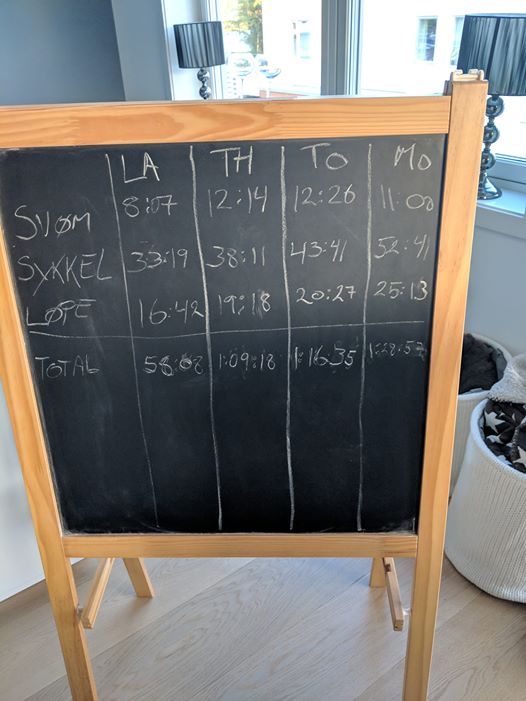 LA TH TO MO
SVØM 8:07 12:14 12:26 11:00
SYKKEL 33:19 38:11 43:41 52:41
LØPE 16:42 19:18 20:27 25:13
TOTAL 58:08 1:09:18 1:16:35